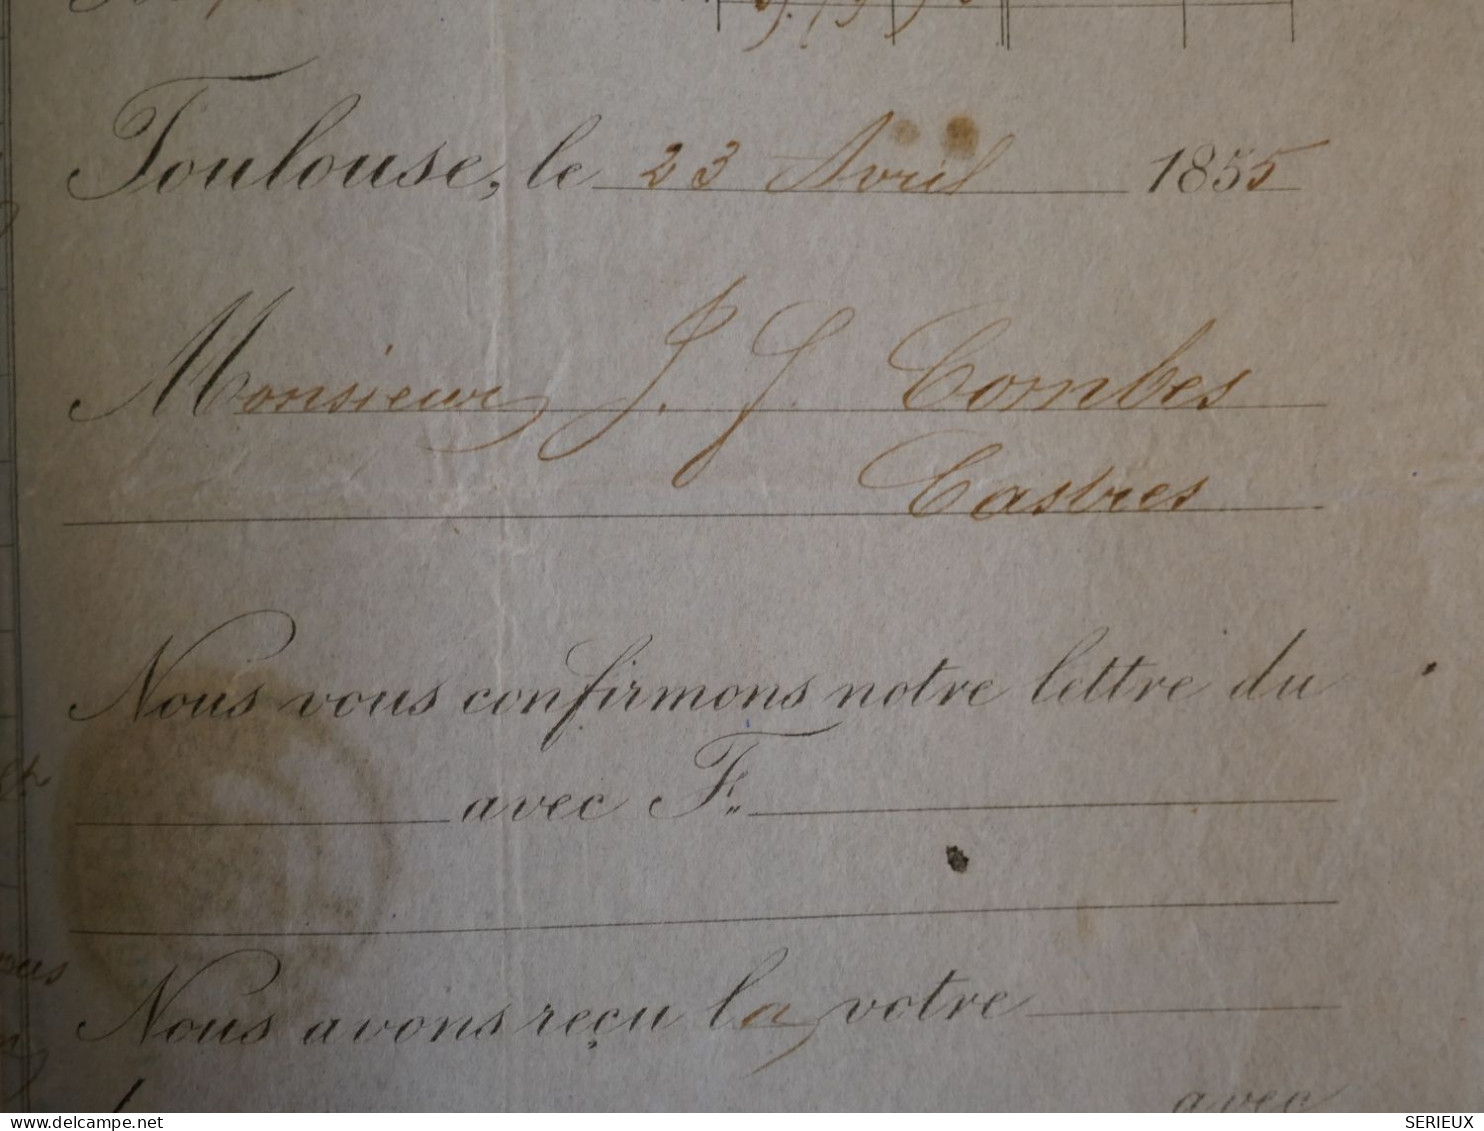 Toulouse, le 23 Avril 1855
Monsieur J. J. Combes
Castres
Nous vous confirmons notre lettre du
avec F.
Nous avons reçu la votre
avec
SERIEUX